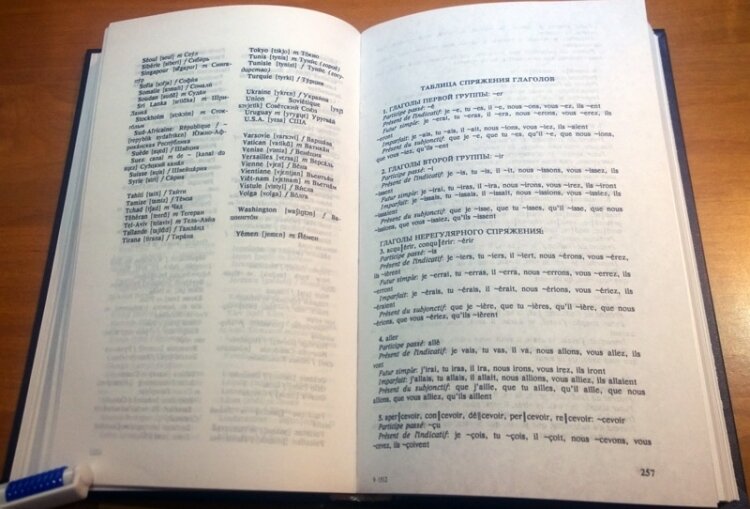 Séoul [seul] m Сеул
Sibérie [siberi] f Сибирь
Singapour [sɛ̃gapur] m Сингапур
Sofia [sɔfja] f София
Somalie [sɔmali] f Сомали
Soudan [sudɑ̃] m Судан
Sri Lanka m Шри-
Ланка
Stockholm m Сток-
гольм
Sud-Africaine: République f ~
Южно-Аф-
риканская Республика
Suède [sɥɛd] f Швеция
Suez: canal m de ~ [kanal də
sɥɛz] Суэцкий канал
Suisse [sɥis] f Швейцария
Syrie [siri] f Сирия
Tahiti [taiti] f Таити
Tamise [tamiz] f Темза
Tchad [tʃad] m Чад
Téhéran m Тегеран
Tel-Aviv m Тель-Авив
Thaïlande f Таиланд
Tirana [tirana] f Тирана
Tokyo [tɔkjo] m Токио
Tunis [tynis] m Тунис (город)
Tunisie [tynizi] f Тунис (госу-
дарство)
Turquie [tyrki] f Турция
Ukraine [ykrɛn] f Украина
Union f Soviétique
Советский Союз
Uruguay m Уругвай
U.S.A. США
Varsovie [varsɔvi] f Варшава
Vatican [vatikɑ̃] m Ватикан
Venise [vəniz] f Венеция
Versailles [vɛrsaj] m Версаль
Vienne [vjɛn] f Вена
Vientiane f Вьентьян
Viêt-nam m Вьетнам
Vistule [vistyl] f Висла
Volga [vɔlga] f Волга
Washington m Ва-
шингтон
Yémen [jemɛn] m Йемен
ТАБЛИЦА СПРЯЖЕНИЯ ГЛАГОЛОВ
1. ГЛАГОЛЫ ПЕРВОЙ ГРУППЫ: -er
Participe passé: ~é
Présent de l'indicatif: je ~e, tu ~es, il ~e, nous ~ons, vous ~ez, ils ~ent
Futur simple: je ~erai, tu ~eras, il ~era, nous ~erons, vous ~erez, ils
~eront
Imparfait: je ~ais, tu ~ais, il ~ait, nous ~ions, vous ~iez, ils ~aient
Présent du subjonctif: que je ~e, que tu ~es, qu'il ~e, que nous ~ions,
que vous ~iez, qu'ils ~ent
2. ГЛАГОЛЫ ВТОРОЙ ГРУППЫ: -ir
Participe passé: ~i
Présent de l'indicatif: je ~is, tu ~is, il ~it, nous ~issons, vous ~issez, ils
~issent
Futur simple: je ~irai, tu ~iras, il ~ira, nous ~irons, vous ~irez, ils ~iront
Imparfait: je ~issais, tu ~issais, il ~issait, nous ~issions, vous ~issiez, ils
~issaient
Présent du subjonctif: que je ~isse, que tu ~isses, qu'il ~isse, que nous
~issions, que vous ~issiez, qu'ils ~issent
ГЛАГОЛЫ НЕРЕГУЛЯРНОГО СПРЯЖЕНИЯ:
3. acqu|érir, conqu|érir: ~érir
Participe passé: ~is
Présent de l'indicatif: je ~iers, tu ~iers, il ~iert, nous ~érons, vous ~érez,
ils ~ièrent
Futur simple: je ~errai, tu ~erras, il ~erra, nous ~errons, vous ~errez, ils
~erront
Imparfait: je ~érais, tu ~érais, il ~érait, nous ~érions, vous ~ériez, ils
~éraient
Présent du subjonctif: que je ~ière, que tu ~ières, qu'il ~ière, que nous
~érions, que vous ~ériez, qu'ils ~ièrent
4. aller
Participe passé: allé
Présent de l'indicatif: je vais, tu vas, il va, nous allons, vous allez, ils
vont
Futur simple: j'irai, tu iras, il ira, nous irons, vous irez, ils iront
Imparfait: j'allais, tu allais, il allait, nous allions, vous alliez, ils allaient
Présent du subjonctif: que j'aille, que tu ailles, qu'il aille, que nous
allions, que vous alliez, qu'ils aillent
5. aper|cevoir, con|cevoir, dé|cevoir, per|cevoir, re|cevoir: ~cevoir
Participe passé: ~çu
Présent de l'indicatif: je ~çois, tu ~çois, il ~çoit, nous ~cevons, vous
~cevez, ils ~çoivent
257